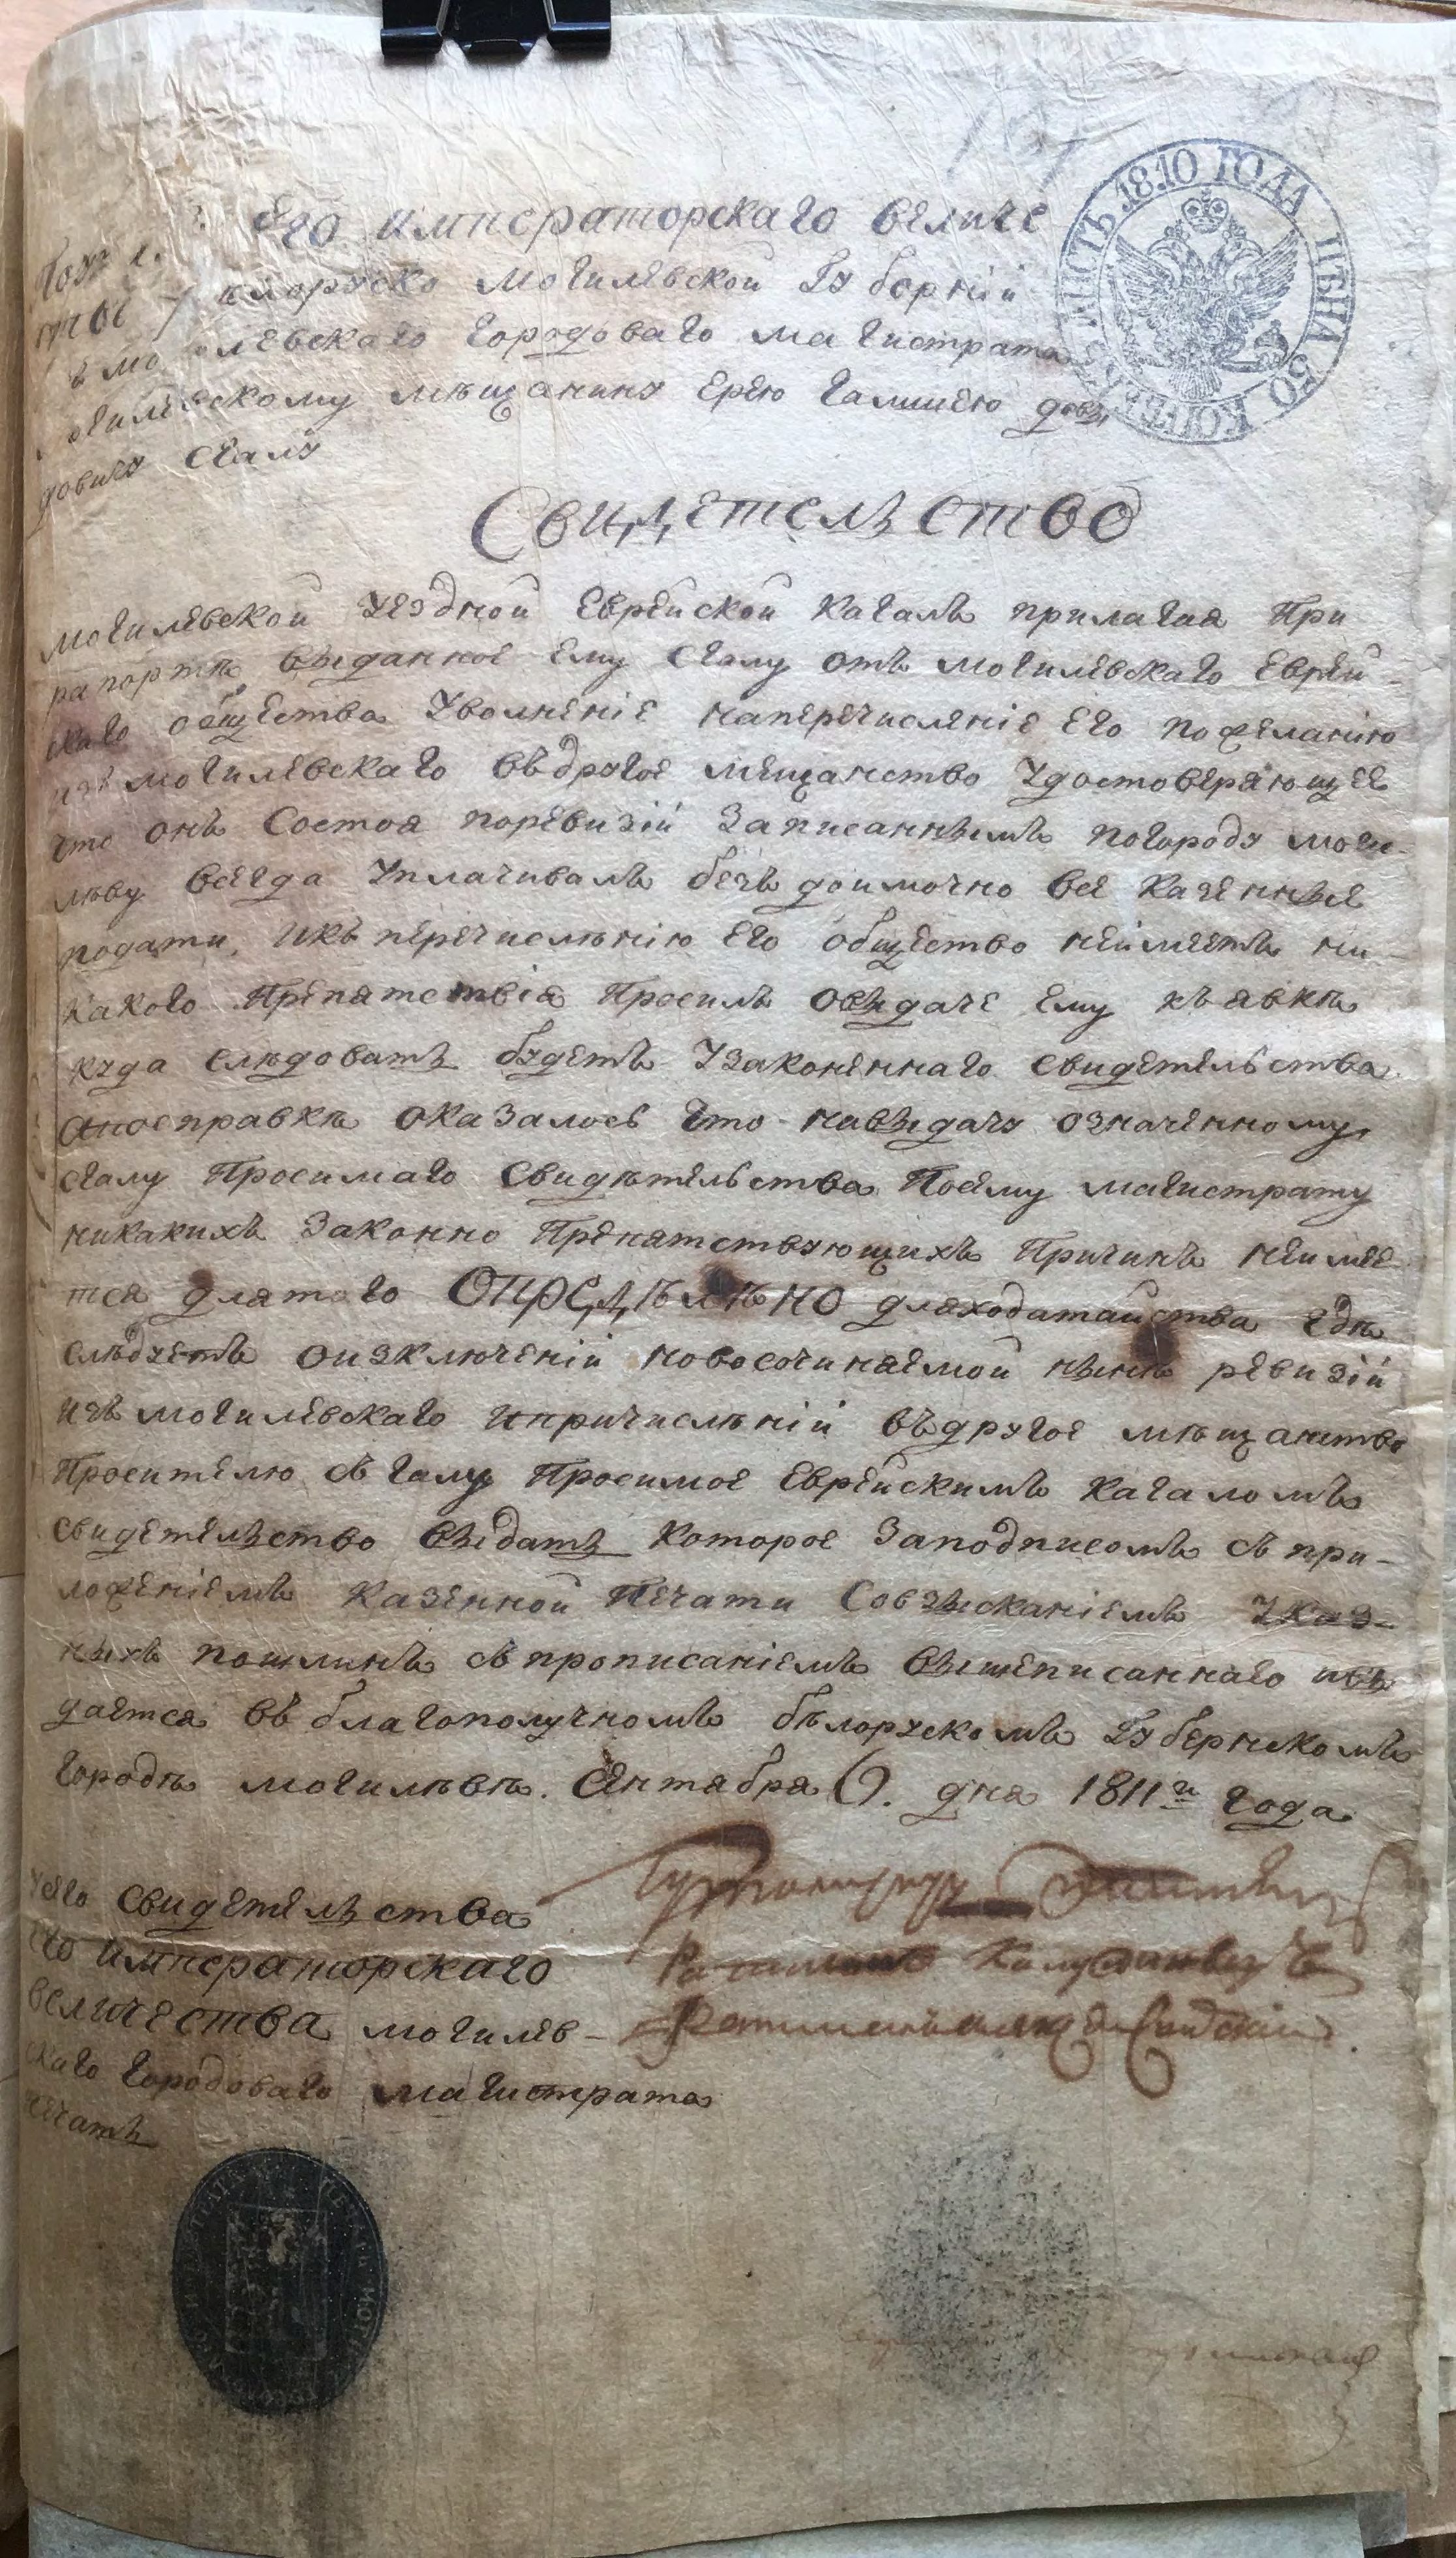 1810 ГОДА ЦѢНА 50 КОПѢЕКЪ
Его императорскаго величе
Могилевской Губернїи
городоваго магистрата
мѣщанину
Сгалу
Свидетелъство
могилевской уездной Еврейской Кагалъ прилагая При
рапортѣ выданное ему Сгалу отъ могилевскаго Еврей
скаго общества Уволнение наперечисление Его пожеланию
изъ могилевскаго вѣдругое мещанство Удостоверяющее
что онъ Состоя поревизїи Записаннымъ погороду моги-
леву всегда Уплачивалъ безъ доимочно все Казенные
подати, Икъ перечислѣнию Его общество неимеетъ ни-
какого Препятствїя Просилъ овыдаче Ему къявкѣ
куда слѣдовать будетъ Узаконеннаго свидетельства
оказалось что навыдачу означенному
сгалу Просимаго Свидѣтельства Посему магистрату
никакихъ Законно Препятствующихъ Причинъ неимее
тся длятого ОПРЕДѢЛѢНО дляходатайства гдѣ
слѣдуетъ оизключенїи новосочиняемой нынѣ ревизїи
изъ могилевскаго ипричислѣнїи въдругое мѣщанство
Просителю сѣгалу Просимое Еврейскимъ Кагаломъ
свидетелъство выдать которое Заподписомъ съ при-
ложенїемъ Казенной Печати Совзысканїемъ Указ-
ныхъ пошлинъ съ прописанїемъ вышеписаннаго
дается въ благополучномъ бѣлорускомъ Губернскомъ
городѣ могилѣвѣ. Сентября дня 1811го года
усего свидетелъства
его императорскаго
величества могилев-
скаго городоваго магистрата
печать